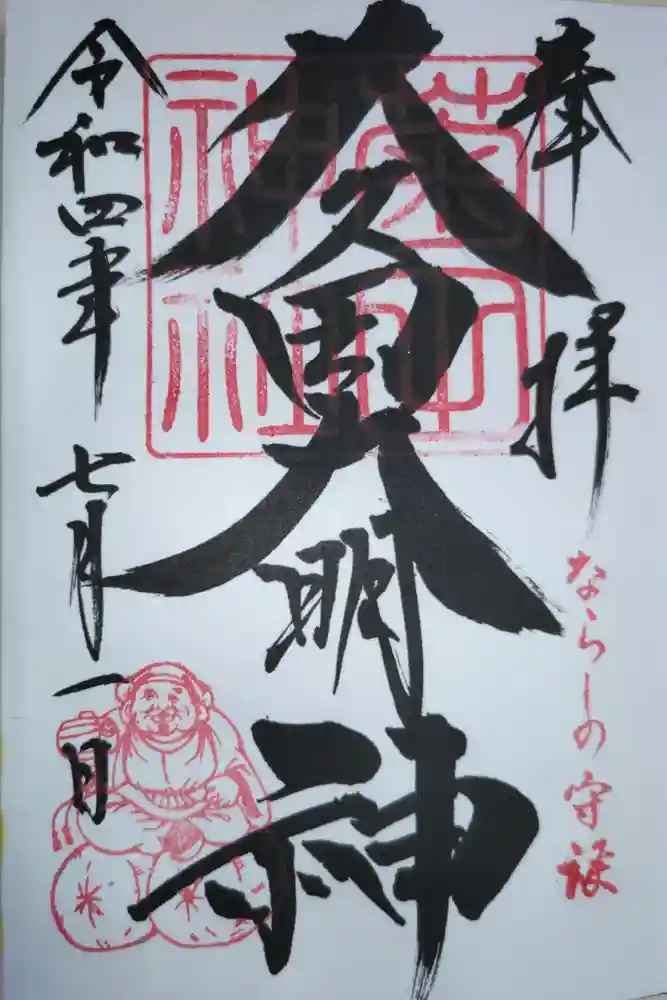 奉拝
ならしの守護
久久田大明神
菊田
神社
令和四年七月一日